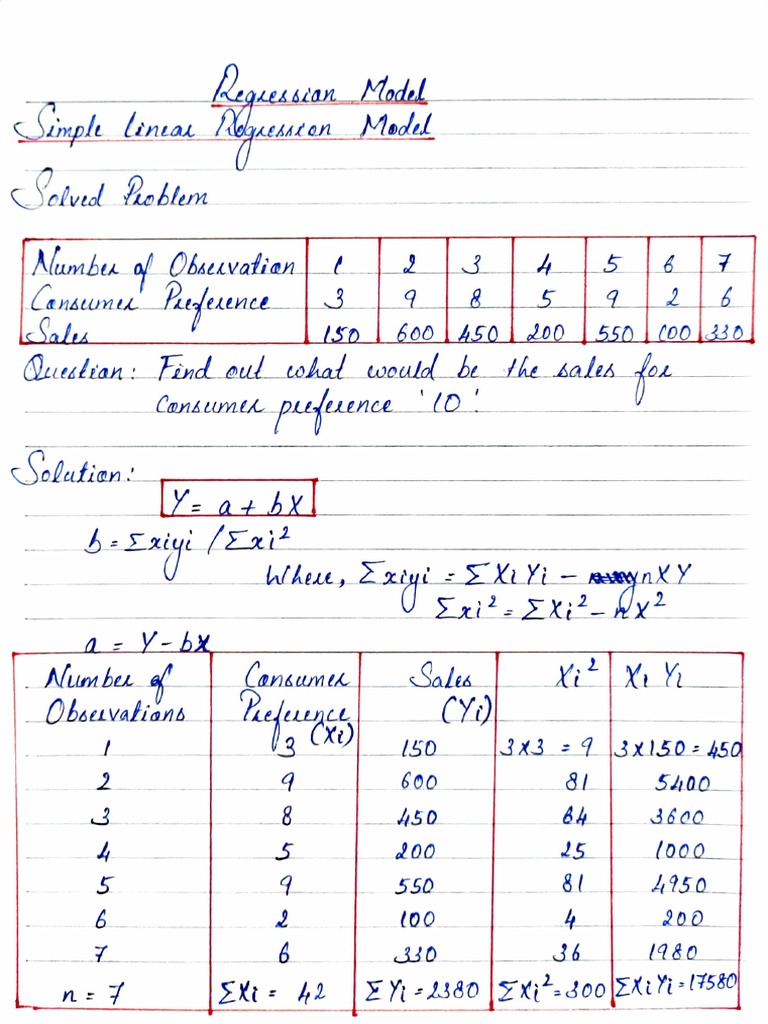 Regression Model
Simple linear Regression Model
Solved Problem
Number of Observation 1 2 3 4 5 6 7
Consumer Preference 3 9 8 5 9 2 6
Sales 150 600 450 200 550 100 330
Question: Find out what would be the sales for
consumer preference '10'.
Solution:
Y = a + bX
b = Σxiyi / Σxi²
Where, Σxiyi = ΣXiYi - nXY
Σxi² = ΣXi² - nX²
a = Y - bx
Number of Consumer Sales Xi² Xi Yi
Observations Preference (Yi)
(Xi)
1 3 150 3x3 = 9 3x150 = 450
2 9 600 81 5400
3 8 450 64 3600
4 5 200 25 1000
5 9 550 81 4950
6 2 100 4 200
7 6 330 36 1980
n = 7 ΣXi = 42 ΣYi = 2380 ΣXi² = 300 ΣXiYi = 17580